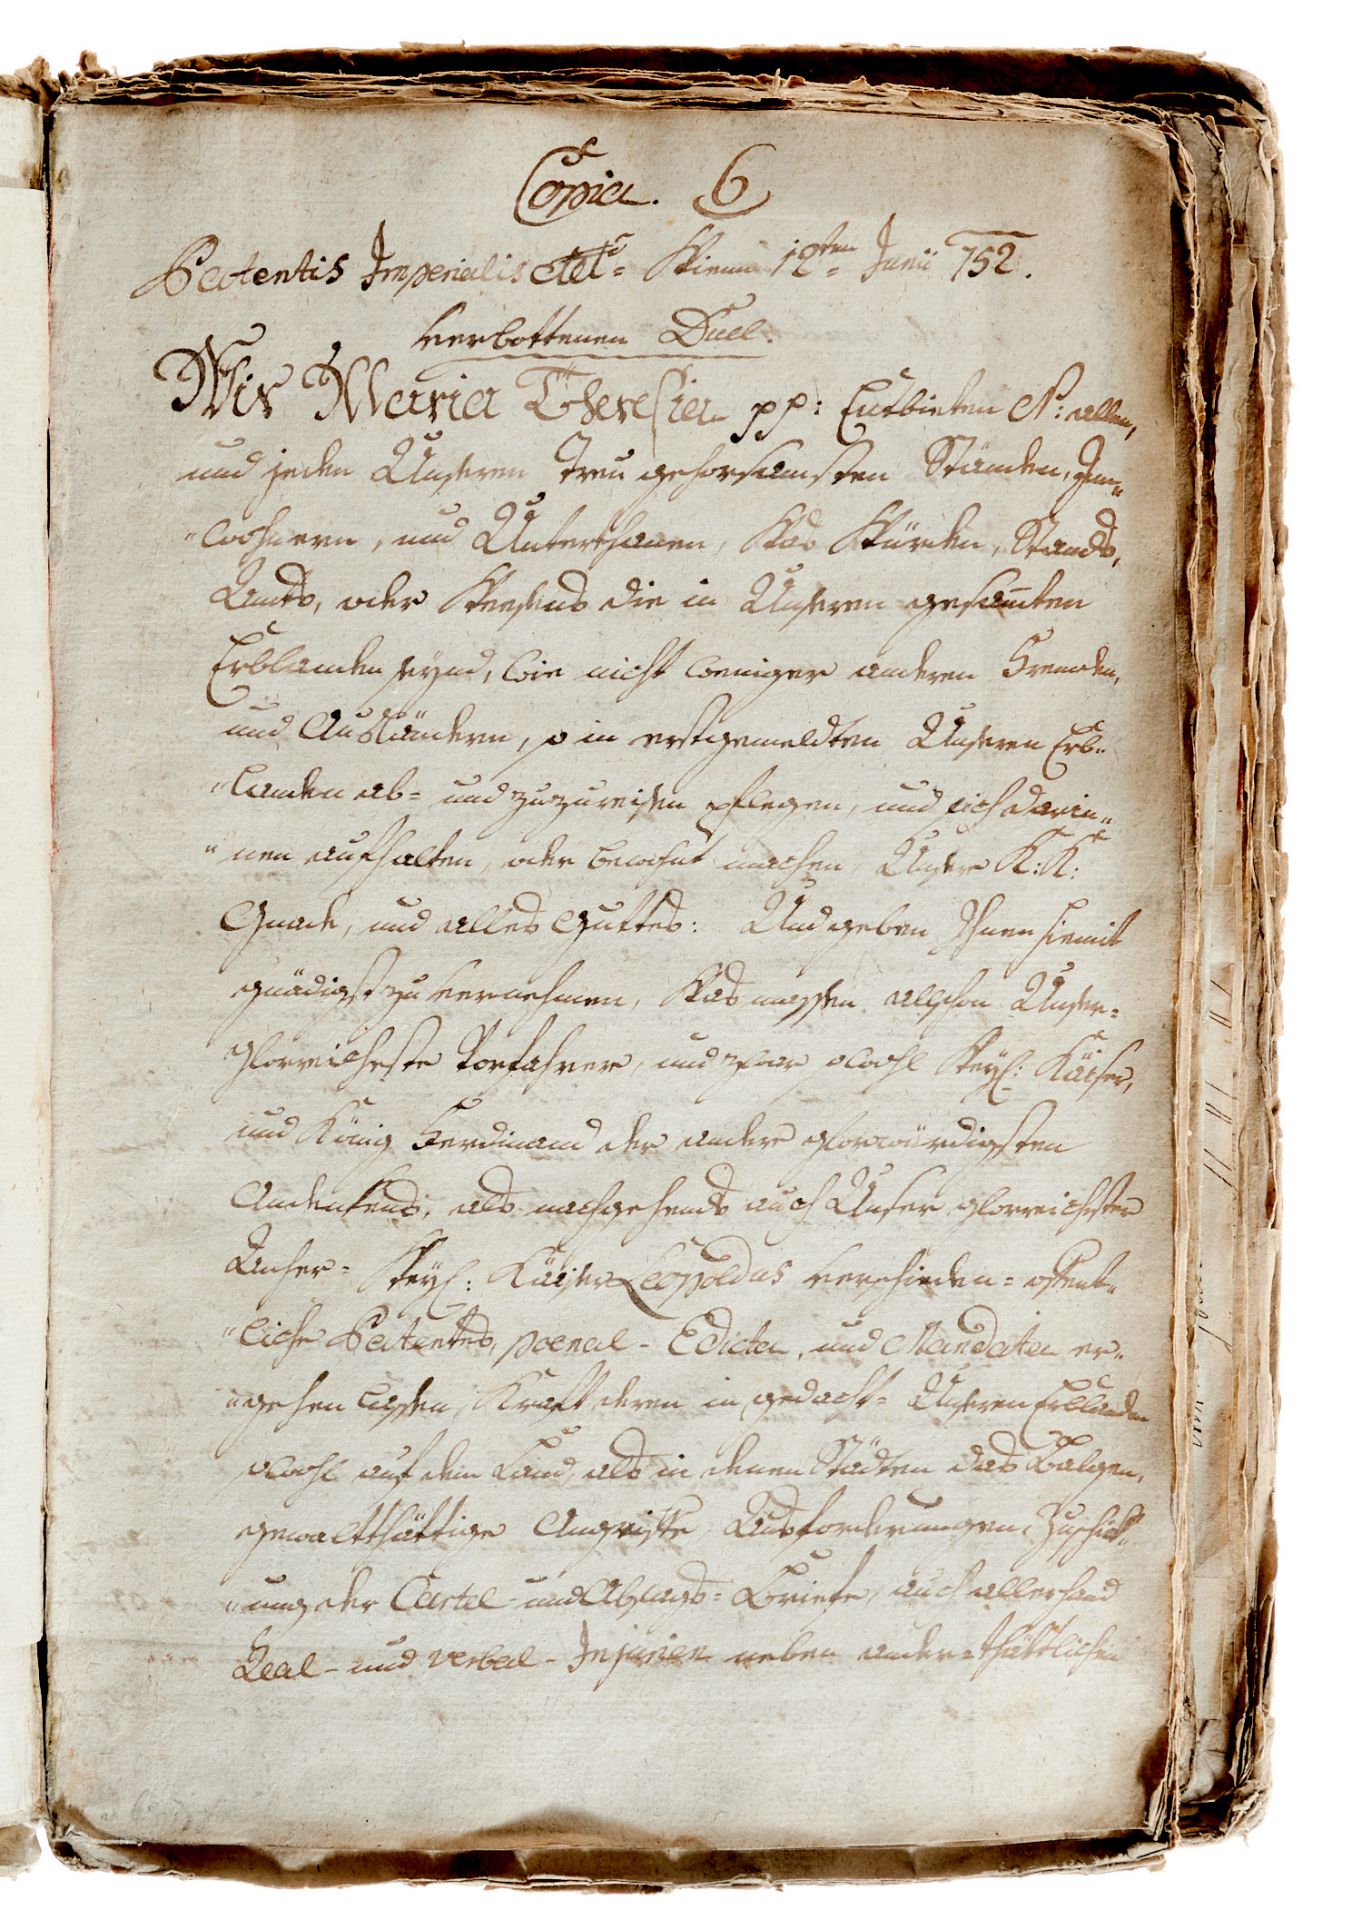 Copia. 6
Patentis Imperialis Wienn 12ten Junii 752.
verbottenen Duel.
Wir Maria Theresia pp: Entbieten N: allen,
und jeden Unseren treu gehorsamsten Ständen, Inn„
„wohnern, und Unterthanen, Was Würden, Stands,
Amts, oder Weesens die in Unseren gesam̅ten
Erblanden seynd, wie nicht weniger anderen Fremden,
und Ausländern, so in erstgemeldten Unseren Erb„
„landen ab- und zuzureisen pflegen, und sich darin„
„nen aufhalten, oder bewohnt machen, Unsere K: K:
Gnade, und alles Guttes: Und geben Ihnen hiemit
gnädigst zu vernehmen, Was massen allschon Unsere-
glorreicheste Vorfahrer, und zwar sowohl Weyl: Kaiser,
und König Ferdinand der andere glorwürdigsten
Andenkens, als nachgehends auch Unser glorreichster
Anherr- Weyl: Kaiser Leopoldus verschieden- offent„
„liche Patentes, poenal-Edicta, und Mandata er„
„gehen lassen, Kraft deren in gedacht- Unseren Erblanden
sowohl auf dem Land, als in denen Städten das Balgen,
gewaltthättige Angriffe, Ausforderungen, Zuschick„
„ung der Cartel- und Absags-Briefe, auch allerhand
Real- und verbal-Injurien neben ander-thättlichen